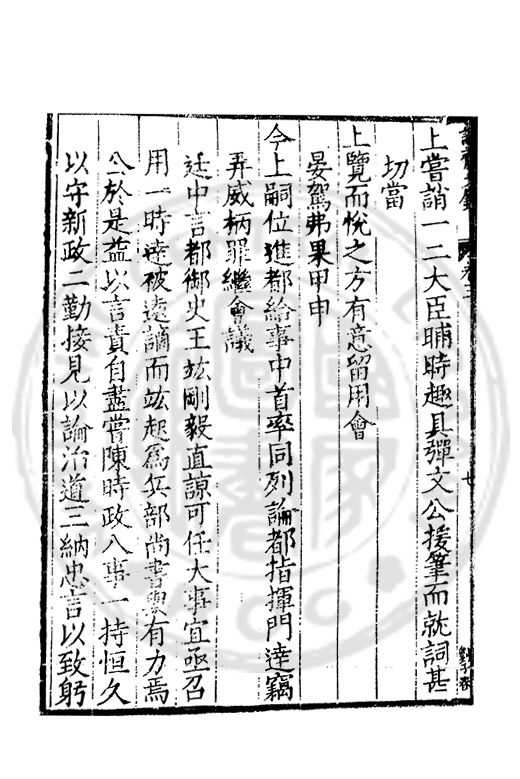 上嘗誚一二大臣晡時趣具彈文公援筆而就詞甚
切當
上覽而悅之方有意留用會
晏駕弗果甲申
今上嗣位進都給事中首率同列論都指揮門逹竊
弄威柄罪繼會議
廷中言都御史王竑剛毅直諒可任大事宜亟召
用一時逹被遠謫而竑起為兵部尚書與有力焉
公於是益以言責自盡嘗陳時政八事一持恒久
以守新政二勤接見以論治道三納忠言以致躬